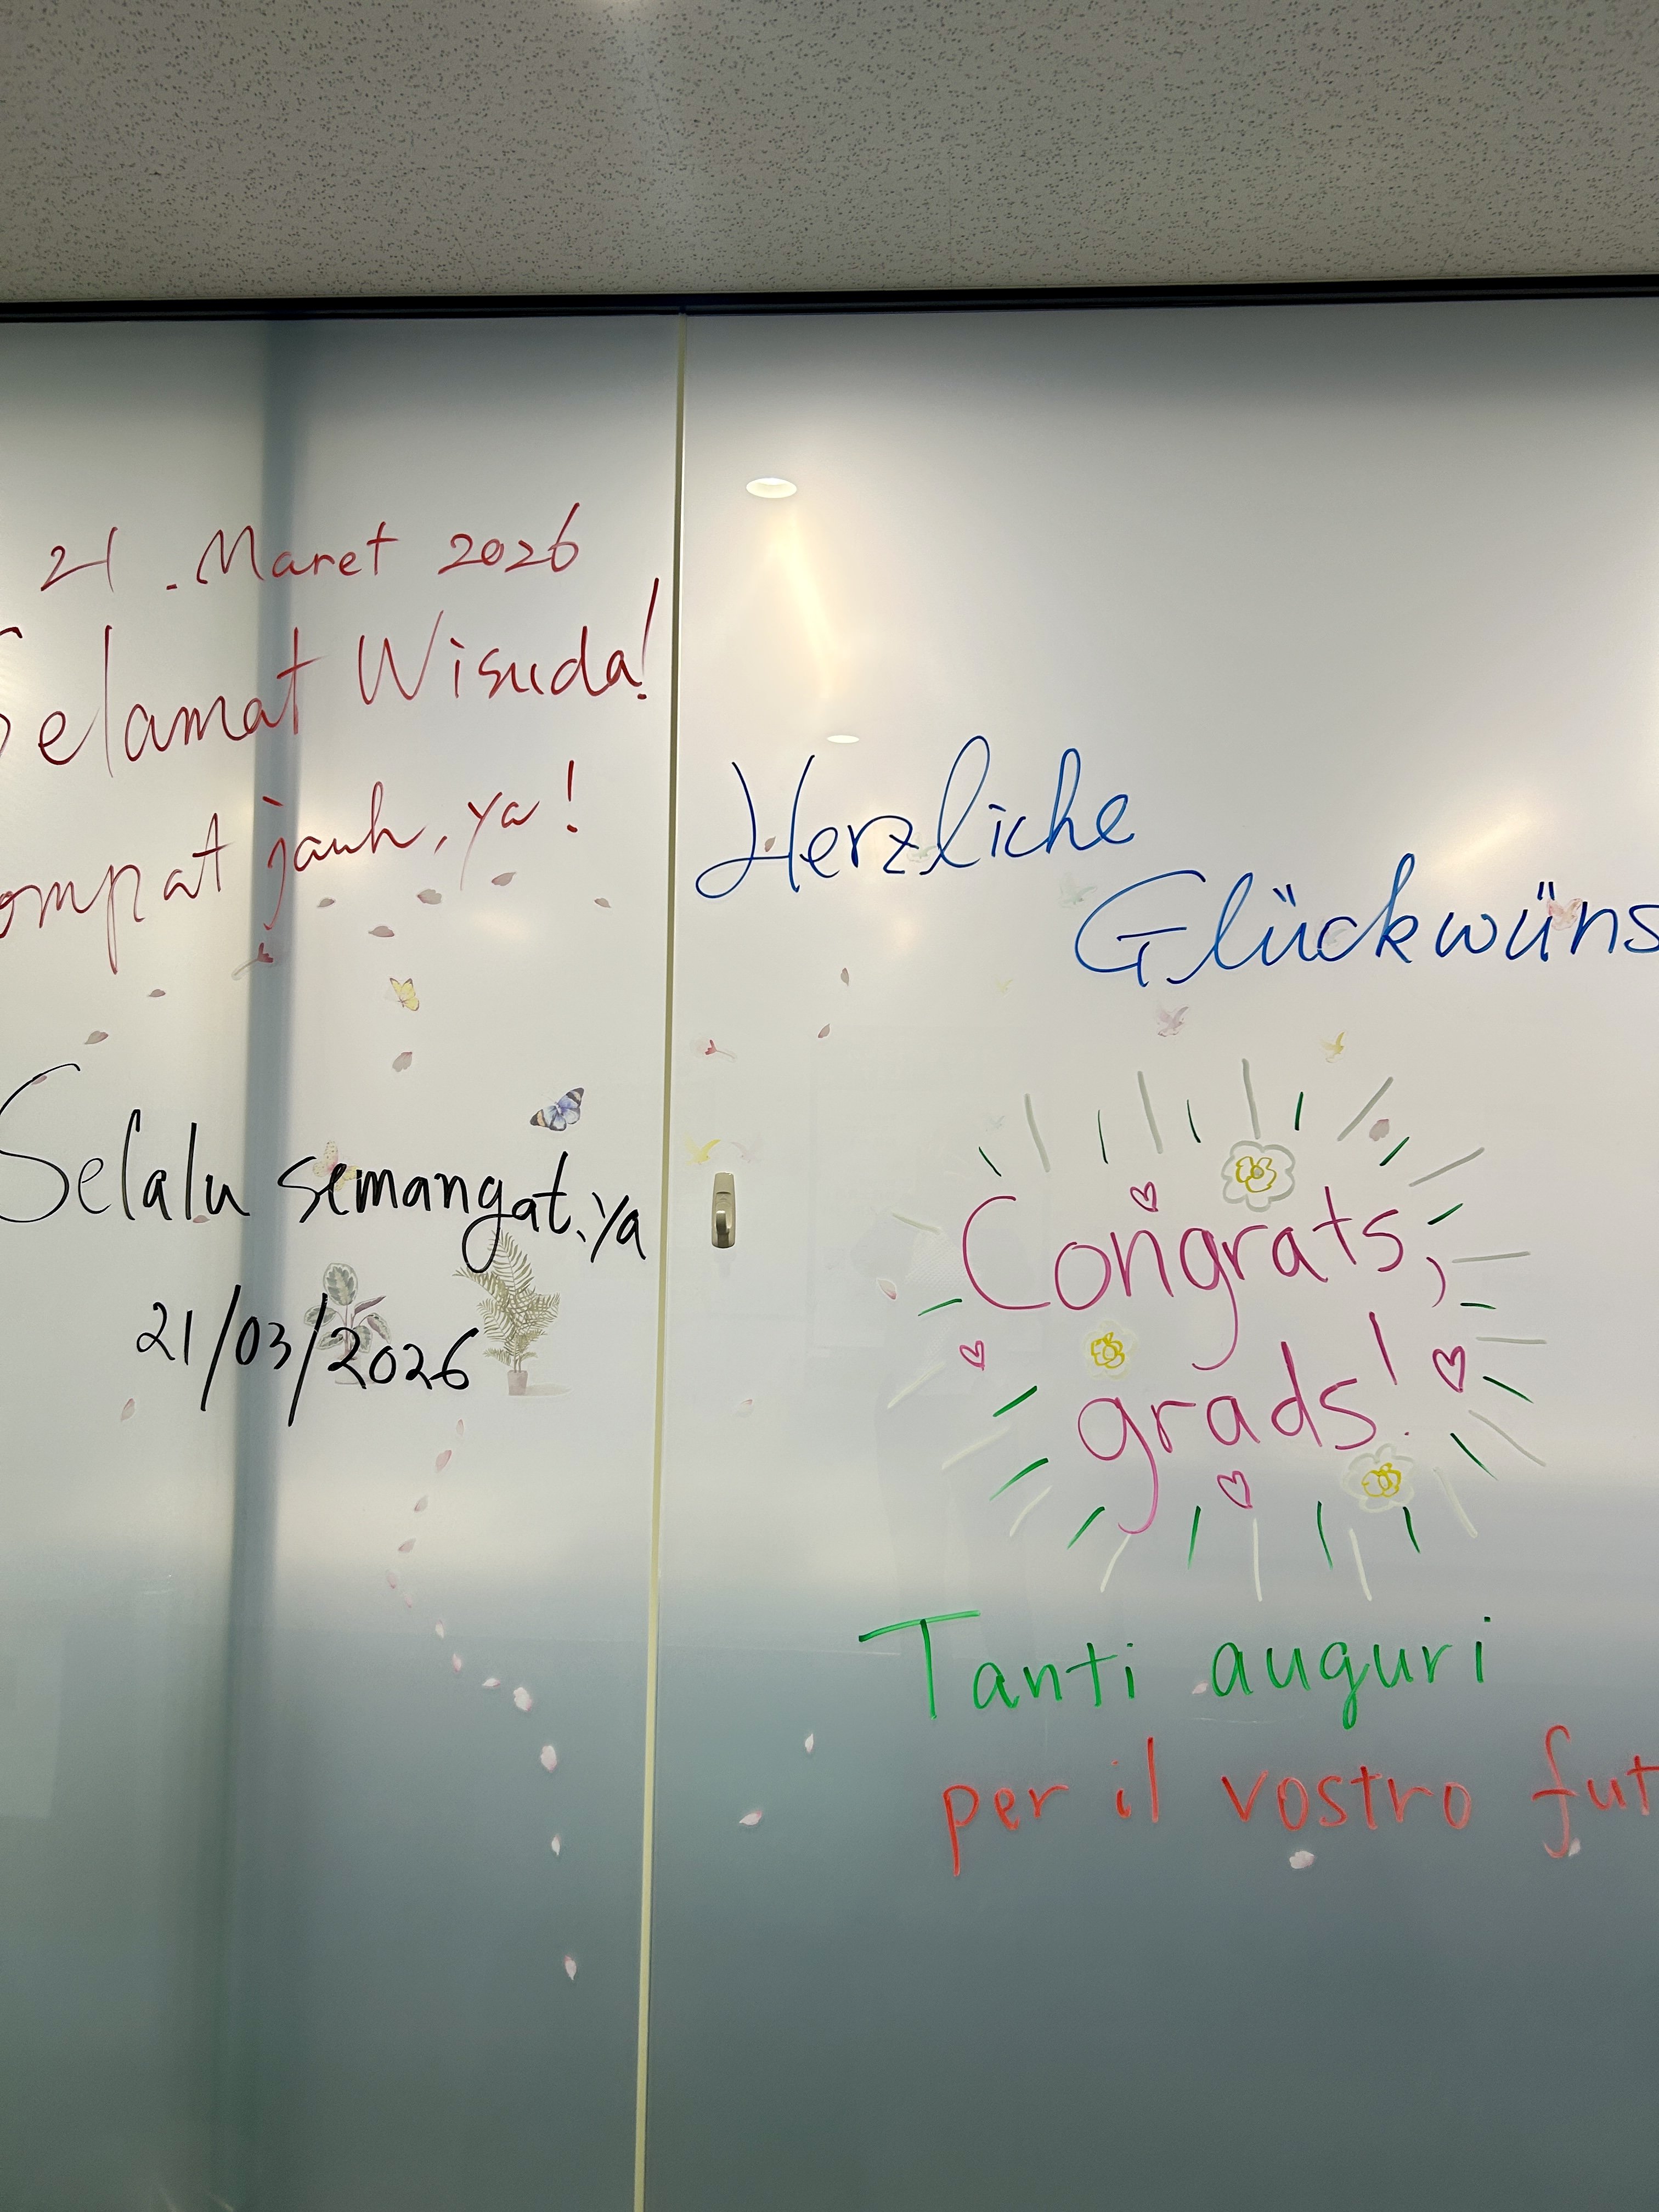 21 . Maret 2026
Selamat Wisuda!
ompat jauh, ya!
Selalu semangat, ya
21/03/2026
Herzliche
Glückwüns
Congrats,
grads!
Tanti auguri
per il vostro fut